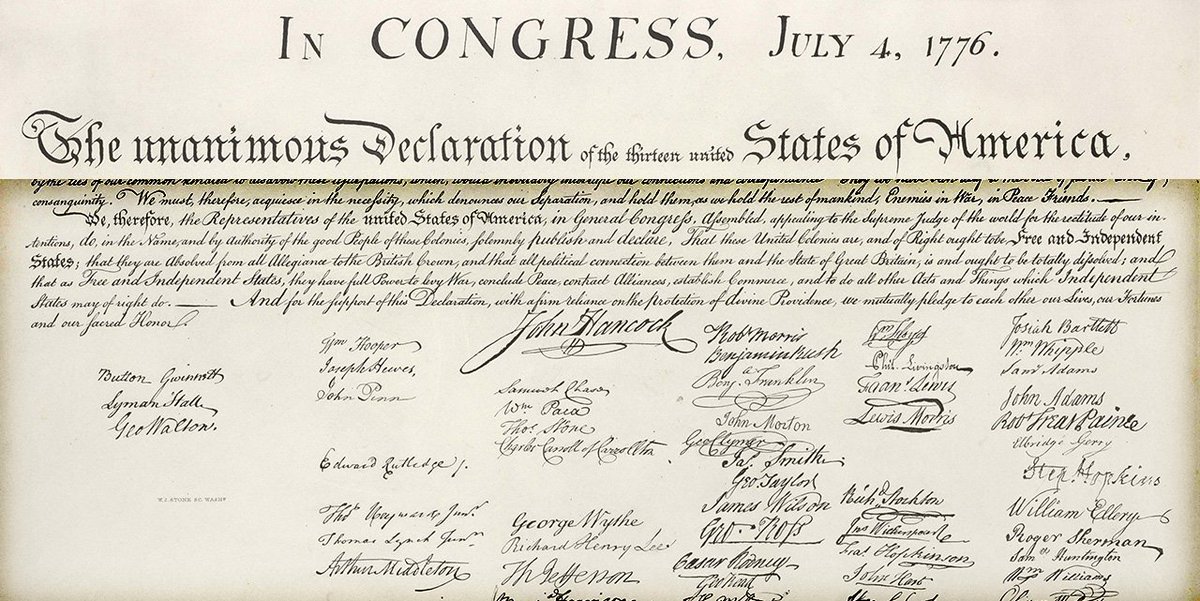 IN CONGRESS, JULY 4, 1776.
The unanimous Declaration of the thirteen united States of America,
by the ties of our common kindred to disavow these usurpations, which, would inevitably interrupt our connections and correspondence.
consanguinity. We must, therefore, acquiesce in the necessity, which denounces our Separation, and hold them, as we hold the rest of mankind, Enemies in War, in Peace Friends.—
We, therefore, the Representatives of the united States of America, in General Congress, Assembled, appealing to the Supreme Judge of the world for the rectitude of our in-
tentions, do, in the Name, and by Authority of the good People of these Colonies, solemnly publish and declare, That these United Colonies are, and of Right ought to be Free and Independent
States; that they are Absolved from all Allegiance to the British Crown, and that all political connection between them and the State of Great Britain, is and ought to be totally dissolved; and
that as Free and Independent States, they have full Power to levy War, conclude Peace, contract Alliances, establish Commerce, and to do all other Acts and Things which Independent
States may of right do. — And for the support of this Declaration, with a firm reliance on the protection of divine Providence, we mutually pledge to each other our Lives, our Fortunes
and our sacred Honor.
Button Gwinnett
Lyman Hall
Geo Walton.
W.J. STONE SC. WASHN
Wm Hooper
Joseph Hewes,
John Penn
Edward Rutledge /.
Thos Heyward Junr.
Thomas Lynch Junr.
Arthur Middleton
John Hancock
Samuel Chase
Wm Paca
Thos Stone
Charles Carroll of Carrollton
George Wythe
Richard Henry Lee
Th Jefferson
Robt Morris
Benjamin Rush
Benja Franklin
John Morton
Geo Clymer
Jas Smith
Geo Taylor
James Wilson
Geo. Ross
Caesar Rodney
Geo Read
Wm Floyd
Phil. Livingston
Frans. Lewis
Lewis Morris
Richd Stockton
Jno Witherspoon
Fras Hopkinson
John Hart
Josiah Bartlett
Wm Whipple
Saml Adams
John Adams
Robt Treat Paine
Elbridge Gerry
Step. Hopkins
William Ellery
Roger Sherman
Saml Huntington
Wm Williams